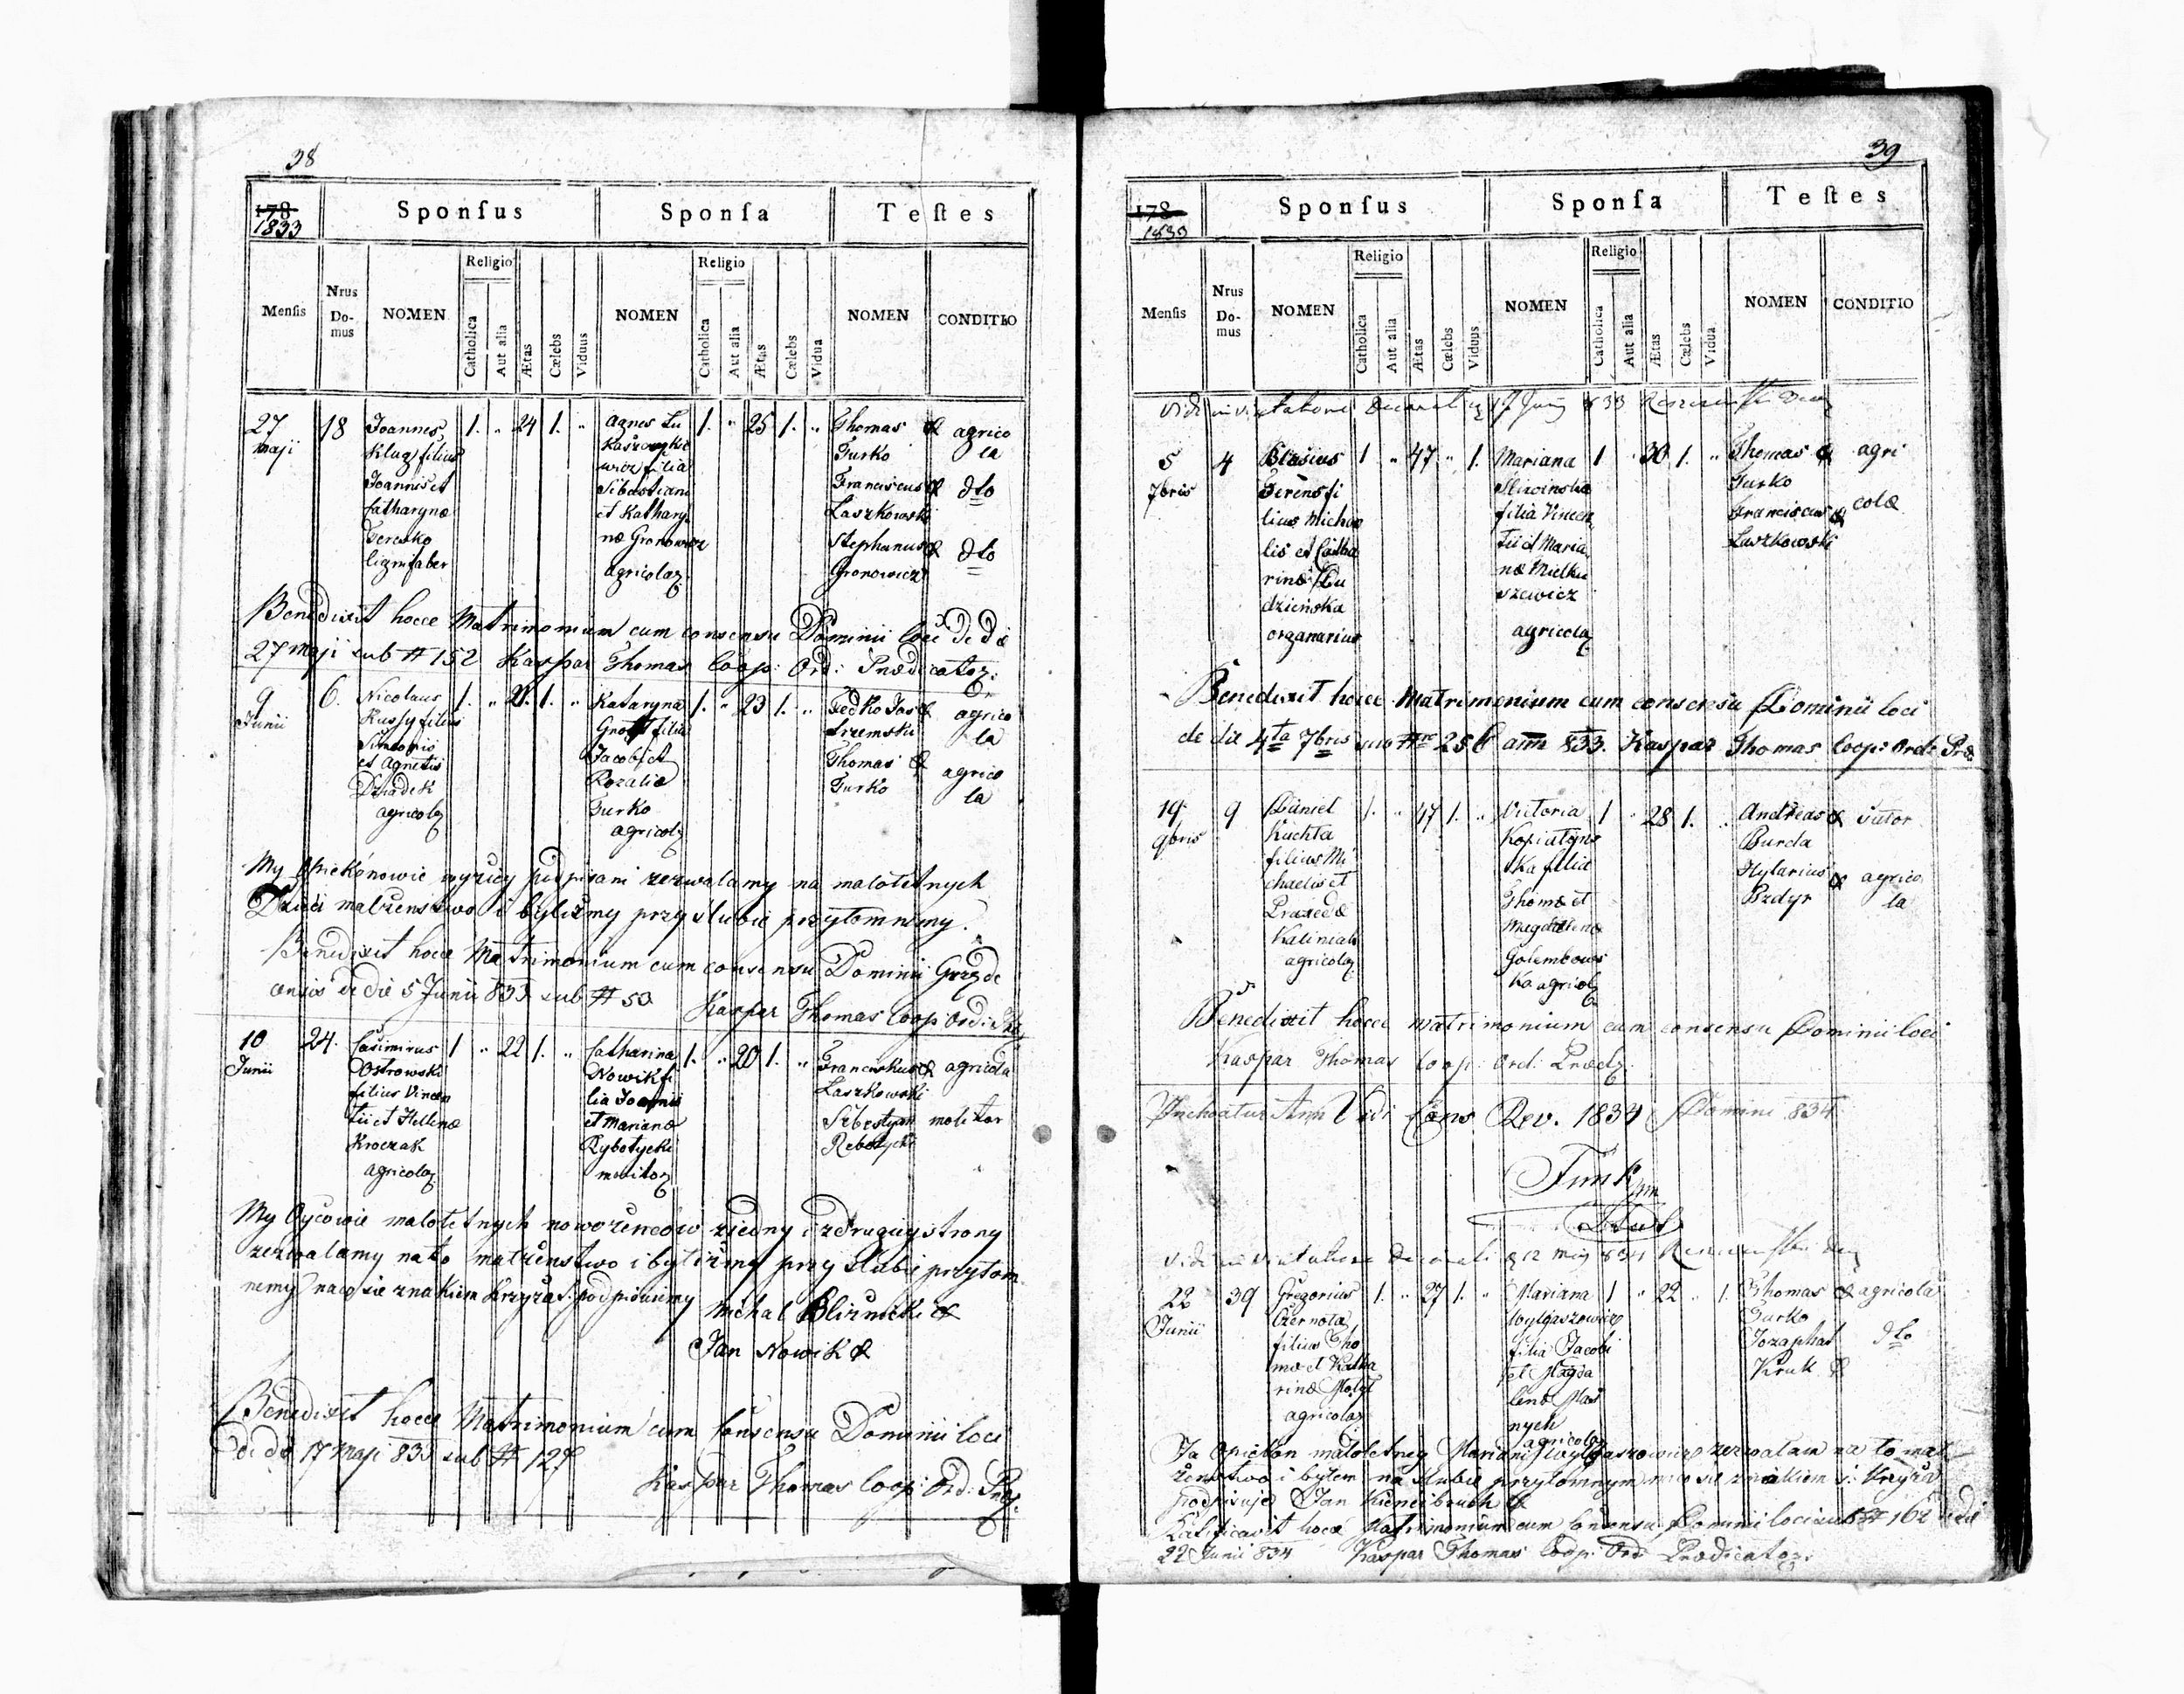 38
178
1833
Sponſus
Sponſa
Teſtes
Menſis
Nrus Do-mus
NOMEN
Religio
Catholica
Aut alia
Ætas
Cælebs
Viduus
NOMEN
Religio
Catholica
Aut alia
Ætas
Cælebs
Vidua
NOMEN
CONDITIO
27 Maji
18
Joannes
Klug filius
Joannis et
Catharynæ
Teresko
lignifaber
1. " 24 1. "
Agnes Lu
filia
Sebastiani
et Kathary
næ Gronowicz
agricolaz
1. " 25 1. "
Thomas
Turko
agrico
la
Franciscus
Laszkowski
dto
Stephanus
Gronowicz
dto
Benedixit hocce Matrimonium cum consensu Dominii loci de die
27 Maji sub # 152 Kaspar Thomas Coop: Ord: Prædicatoz:
9 Junii
6.
Nicolaus
filius
Simeonis
et Agnetis
Dziadek
agricolaz
1. " 1. "
Kataryna
filia
Jacobi et
Rozaliæ
Turko
agricolz
1. " 23 1. "
Fedko Jas
trzemski
agrico
la
Thomas
Turko
agrico
la
My Opiekónowie wyzicy podpisani zezwalamy na małoletnych
Dzieci małzenstwo i bylizmy przy slubie przytomnemy.
Benedixit hocce Matrimonium cum consensu Dominii
de die 5 Junii 833 sub # 50 Kaspar Thomas Coop: Ord:
10 Junii
24.
Casimirus
Ostrowski
filius Vincen
tii et Hellenæ
Kroczak
agricolaz
1 " 22 1. "
Catharina
Nowik fi
lia Joannis
et Marianæ
Rybotycki
molitoz
1. " 20 1. "
Franciskus
Laszkowski
agricola
Sebestyan
molitor
My Oycowie małoletnych nowożenców ziedny i zdrugiey strony
zezwalamy na to matżenstwo i bylizmy przy slubie przytom
nemy na co sie znakiem Krzyża S: podpisuiemy
Jan Nowik
Benedixit hocce Matrimonium cum Consensu Dominii loci
de die 17 Maji 833 sub # 127
Kaspar Thomas Coop: Ord:
39
178
1833
Sponſus
Sponſa
Teſtes
Menſis
Nrus Do-mus
NOMEN
Religio
Catholica
Aut alia
Ætas
Cælebs
Viduus
NOMEN
Religio
Catholica
Aut alia
Ætas
Cælebs
Vidua
NOMEN
CONDITIO
5 7bris
4
Blasius
Ferens fi
lius Micha
lis et Catha
rinæ Du
dzieńska
organarius
1 " 47 " 1.
Mariana
Sliwinska
filia Vincen
tii et Maria
næ Mielku
szewicz
agricolaz
1 " 30 1. "
Thomas
Turko
Franciscus
Laszkowski
agri
colæ
Benedixit hocce Matrimonium cum consensu Dominii loci
de die 4ta 7bris sub 256 833. Kaspar Thomas Coop: Ord: Præ
19 9bris
9
Daniel
Kuchta
filius Mi
chaelis et
Praxedæ
Kaliniak
agricolaz
1. " 47 1. "
Victoria
Kopiatyns
ka filia
Thomæ et
Magdalenæ
Golembows
ka agricolz
1 " 28 1. "
Andreas
Burda
sutor
Hylarius
Bzdyr
agrico
la
Benedixit hocce matrimonium cum consensu Dominii loci
Kaspar Thomas Coop: Ord: Prædz
Incheatur Ann Domini 834
Vidi Cans Rev. 1834
22 Junii
39
Gregorius
Czernota
filius Tho
mæ et Katha
rinæ
agricolaz
1. " 27 1. "
Mariana
filia Jacobi
et Magda
lenæ
nych
agricolaz
1 " 22 " 1.
Thomas
Turko
agricola
Jozaphat
Kruk
dto
Ja Opiekon małoletniey Mariani zezwałam na to mał
żenstwo i byłem na slubie przytomnym na co sie znakiem S: Krzyża
podpisuje Jan
Ratificavit hocce Matrimonium cum Consensu Dominii loci sub # 162 de die
22 Junii 834 Kaspar Thomas Coop: Ord: Prædicatoz: